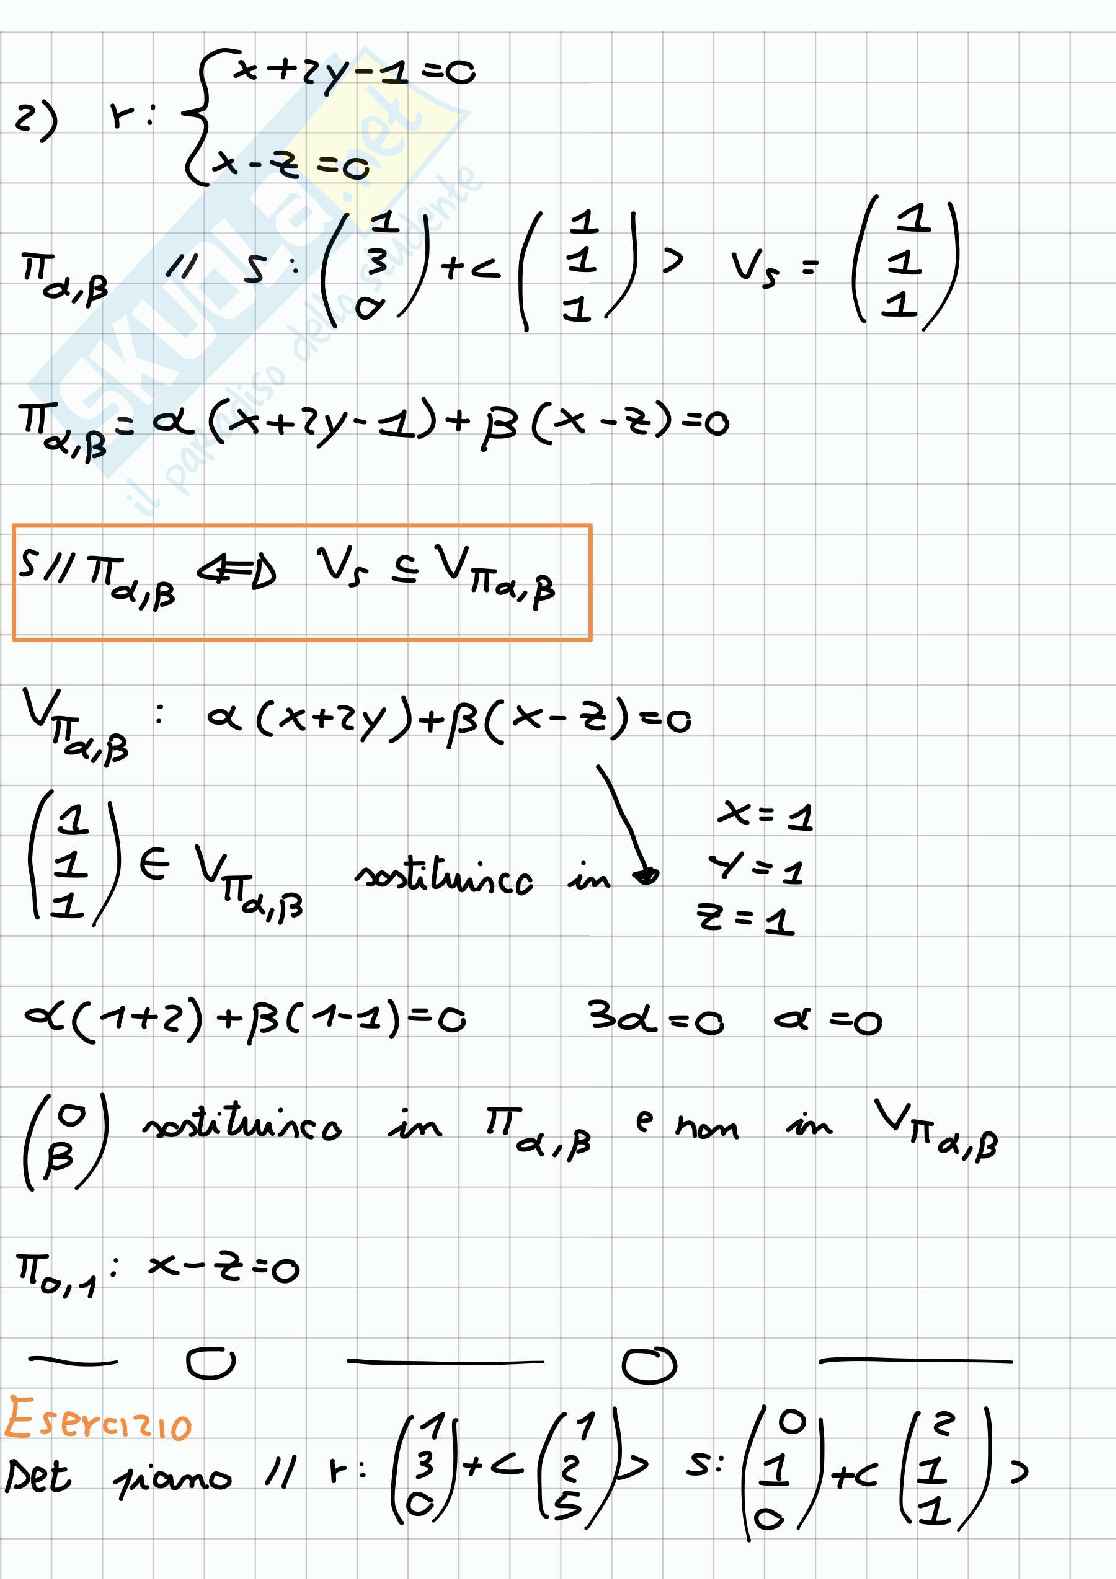 2) r: { x+2y-1=0
x-z=0
π_{α,β} // s: (1 3 0) + < (1 1 1) > V_s = (1 1 1)
π_{α,β} = α(x+2y-1)+β(x-z)=0
s // π_{α,β} ⇔ V_s ⊆ V_{π_{α,β}}
V_{π_{α,β}} : α(x+2y)+β(x-z)=0
(1 1 1) ∈ V_{π_{α,β}} sostituisco in
x=1
y=1
z=1
α(1+2)+β(1-1)=0 3α=0 α=0
(0 β) sostituisco in π_{α,β} e non in V_{π_{α,β}}
π_{0,1}: x-z=0
Esercizio
Det piano // r: (1 3 0) + < (1 2 5) > s: (0 1 0) + < (2 1 1) >
SKUOLA.net
il paradiso dello studente